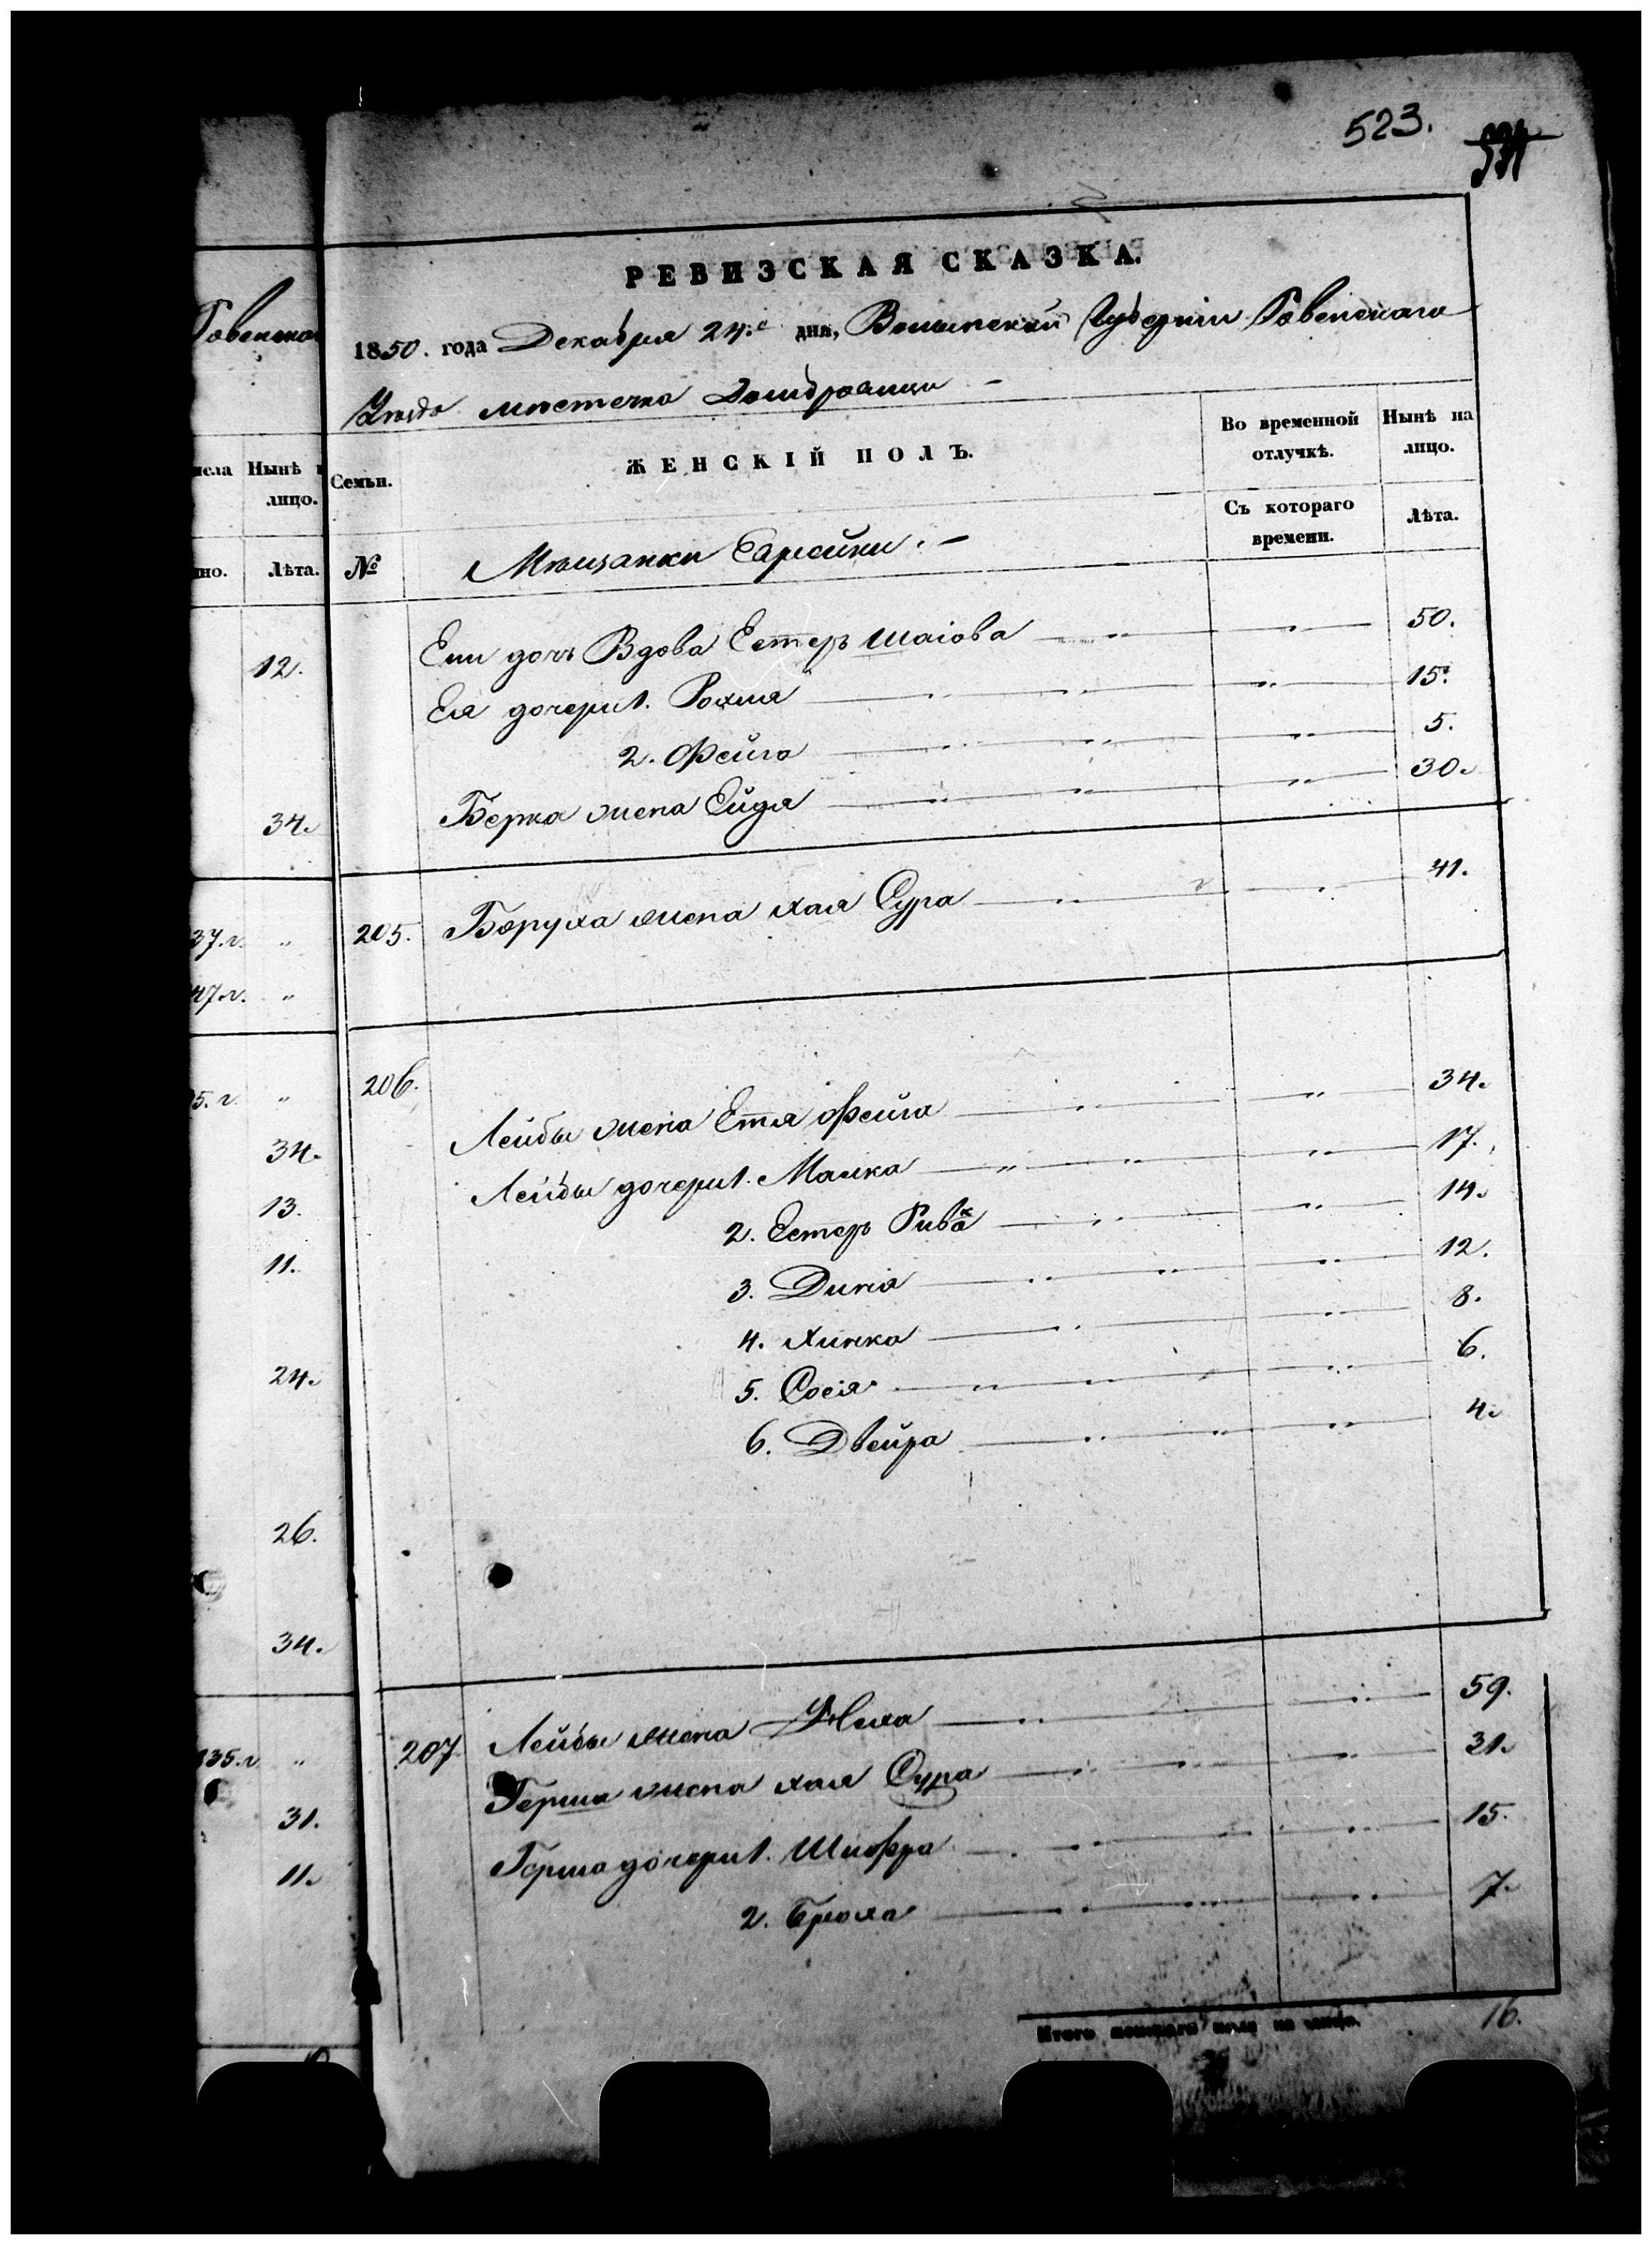 523.
РЕВИЗСКАЯ СКАЗКА.
Ровенска
1850. года Декабря 24.е дня, Волынской Губерніи Ровенскаго
Уезда местечка Домбровицы
Нынѣ
лицо.
Лѣта.
Семьи.
№
ЖЕНСКІЙ ПОЛЪ.
Во временной отлучкѣ.
Нынѣ на лицо.
Съ котораго времени.
Лѣта.
Мѣщанки Еврейки.
дочь Вдова Естеръ Шаіова 50.
Ея дочери 1. Рохля 15.
2. Фейга 5.
Берка жена Ейдя 30.
205. Боруха жена Хая Сура 41.
206. Лейбы жена Етя Фейга 34.
Лейбы дочери 1. Малка 17.
2. Естеръ Ривка 14.
3. Диня 12.
4. Хинка 8.
5. Сося 6.
6. Двейра 4.
207 Лейбы жена 59.
Герша жена Хая Сура 31.
Герша дочери 1. Шифра 15.
2. Броха 7.
Итого женскаго пола на лицо. 16.
12.
34.
37.г. "
47.г. "
5.г. "
34.
13.
11.
24.
26.
34.
835.г "
31.
11.